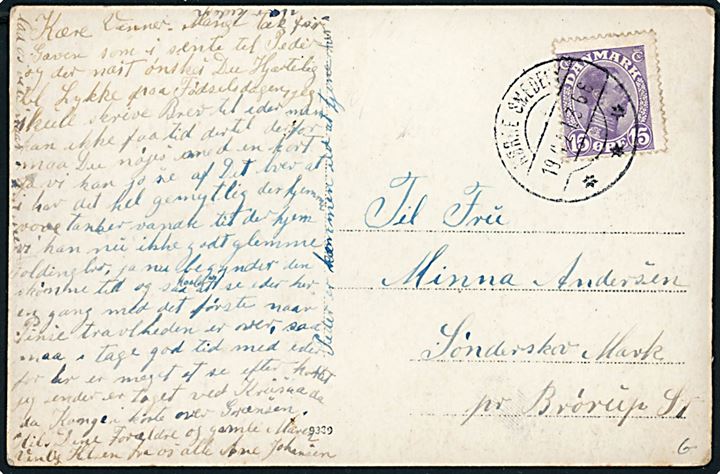 Kære Venner. Mange tak for
Gaven som i sente til Peder
og der næst ønskes Du Hjertelig
til Lykke paa Fødselsdagen, jeg
skulle skrive Brev til eder men
kan ikke faa tid dertil derfor
maa Du nøjes med en kort
ja vi kan jo se af Det brev at
i har det hel gemytlig der hjemme
vore tanker vandr til der hjem
vi kan nu ikke godt glemme
ja nu begynder den
skønne tid og saa at se eder her
en gang med det første naar
Pinse travlheden er over, saa
maa i tage god tid med eder
for her er meget at se efter, kortet
jeg sender er taget ved Krusaa da
da Kongen korte over Grænsen.
Hils Dine Forældre og gamle Maren
Venlig Hilsen fra os alle Ane Johansen
Peder er kommen ud at tjene her
9339
DANMARK
15 ØRE 15
NØRRE SMEDEBY
Til Fru
Minna Andersen
Sønderskov Mark
pr Brørup St
6